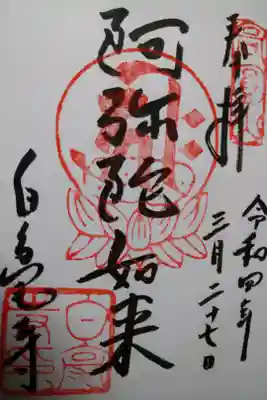 奉拝
令和四年
三月二十七日
阿弥陀如来
白毫寺